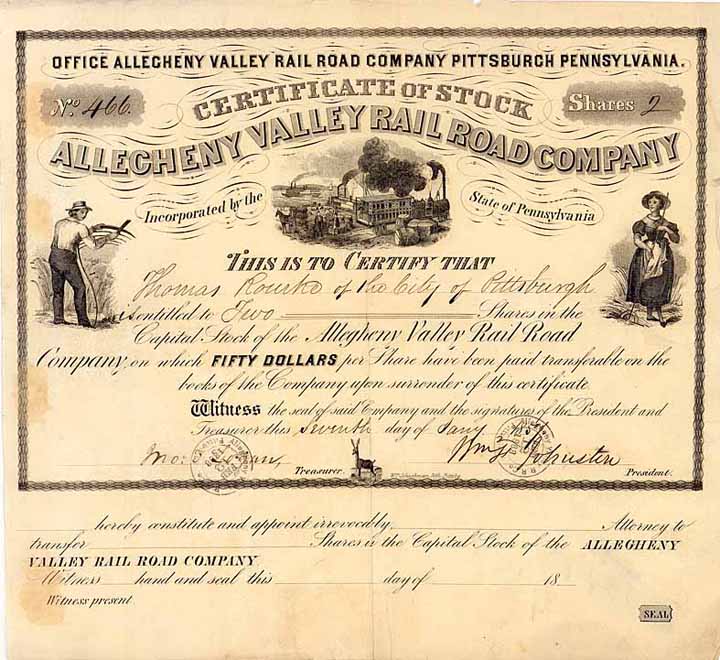 OFFICE ALLEGHENY VALLEY RAIL ROAD COMPANY PITTSBURGH PENNSYLVANIA.
No. 466. CERTIFICATE OF STOCK Shares 2
ALLEGHENY VALLEY RAIL ROAD COMPANY
Incorporated by the State of Pennsylvania
THIS IS TO CERTIFY THAT
Thomas Rourke of the City of Pittsburgh
is entitled to Two Shares in the
Capital Stock of the Allegheny Valley Rail Road
Company, on which FIFTY DOLLARS per Share have been paid transferable on the
books of the Company upon surrender of this certificate
Witness the seal of said Company and the signatures of the President and
Treasurer this Seventh day of Jany
Jno: Treasurer Wm F Johnston President.
hereby constitute and appoint irrevocably Attorney to
transfer Shares in the Capital Stock of the ALLEGHENY
VALLEY RAIL ROAD COMPANY
Witness hand and seal this day of 18
Witness present
SEAL